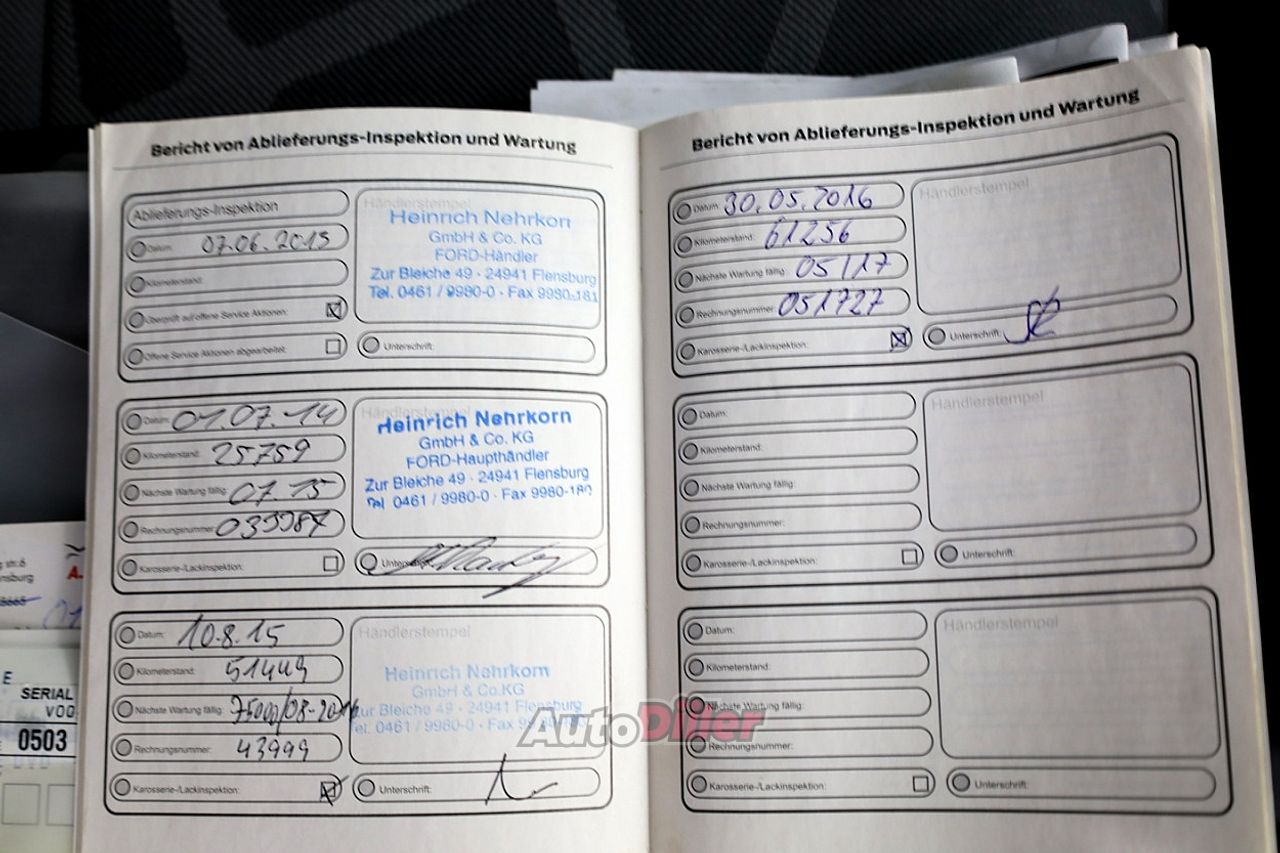 Bericht von Ablieferungs-Inspektion und Wartung
Ablieferungs-Inspektion
Datum: 07.06.2013
Kilometerstand:
Überprüft auf offene Service Aktionen:
Offene Service Aktionen abgearbeitet:
Händlerstempel
Heinrich Nehrkorn
GmbH & Co. KG
FORD-Händler
Zur Bleiche 49 · 24941 Flensburg
Tel. 0461 / 9980-0 · Fax 9980-181
Unterschrift:
Datum: 01.07.14
Kilometerstand: 25759
Nächste Wartung fällig: 07.15
Rechnungsnummer:
Karosserie-/Lackinspektion:
Händlerstempel
Heinrich Nehrkorn
GmbH & Co. KG
FORD-Haupthändler
Zur Bleiche 49 - 24941 Flensburg
Tel. 0461 / 9980-0 · Fax 9980-180
Unterschrift:
Datum: 10.8.15
Kilometerstand: 51449
Nächste Wartung fällig: 75000/08-2016
Rechnungsnummer: 43999
Karosserie-/Lackinspektion:
Händlerstempel
Heinrich Nehrkorn
GmbH & Co.KG
Zur Bleiche 49 · 24941 Flensburg
Tel. 0461 / 9980-0 · Fax
Unterschrift:
Bericht von Ablieferungs-Inspektion und Wartung
Datum: 30.05.2016
Kilometerstand: 61256
Nächste Wartung fällig: 05/17
Rechnungsnummer: 051727
Karosserie-/Lackinspektion:
Händlerstempel
Unterschrift:
Datum:
Kilometerstand:
Nächste Wartung fällig:
Rechnungsnummer:
Karosserie-/Lackinspektion:
Händlerstempel
Unterschrift:
Datum:
Kilometerstand:
Nächste Wartung fällig:
Rechnungsnummer:
Karosserie-/Lackinspektion:
Händlerstempel
Unterschrift:
AutoDiler
str.6
nsburg
A.
E
SERIAL
VOO
0503